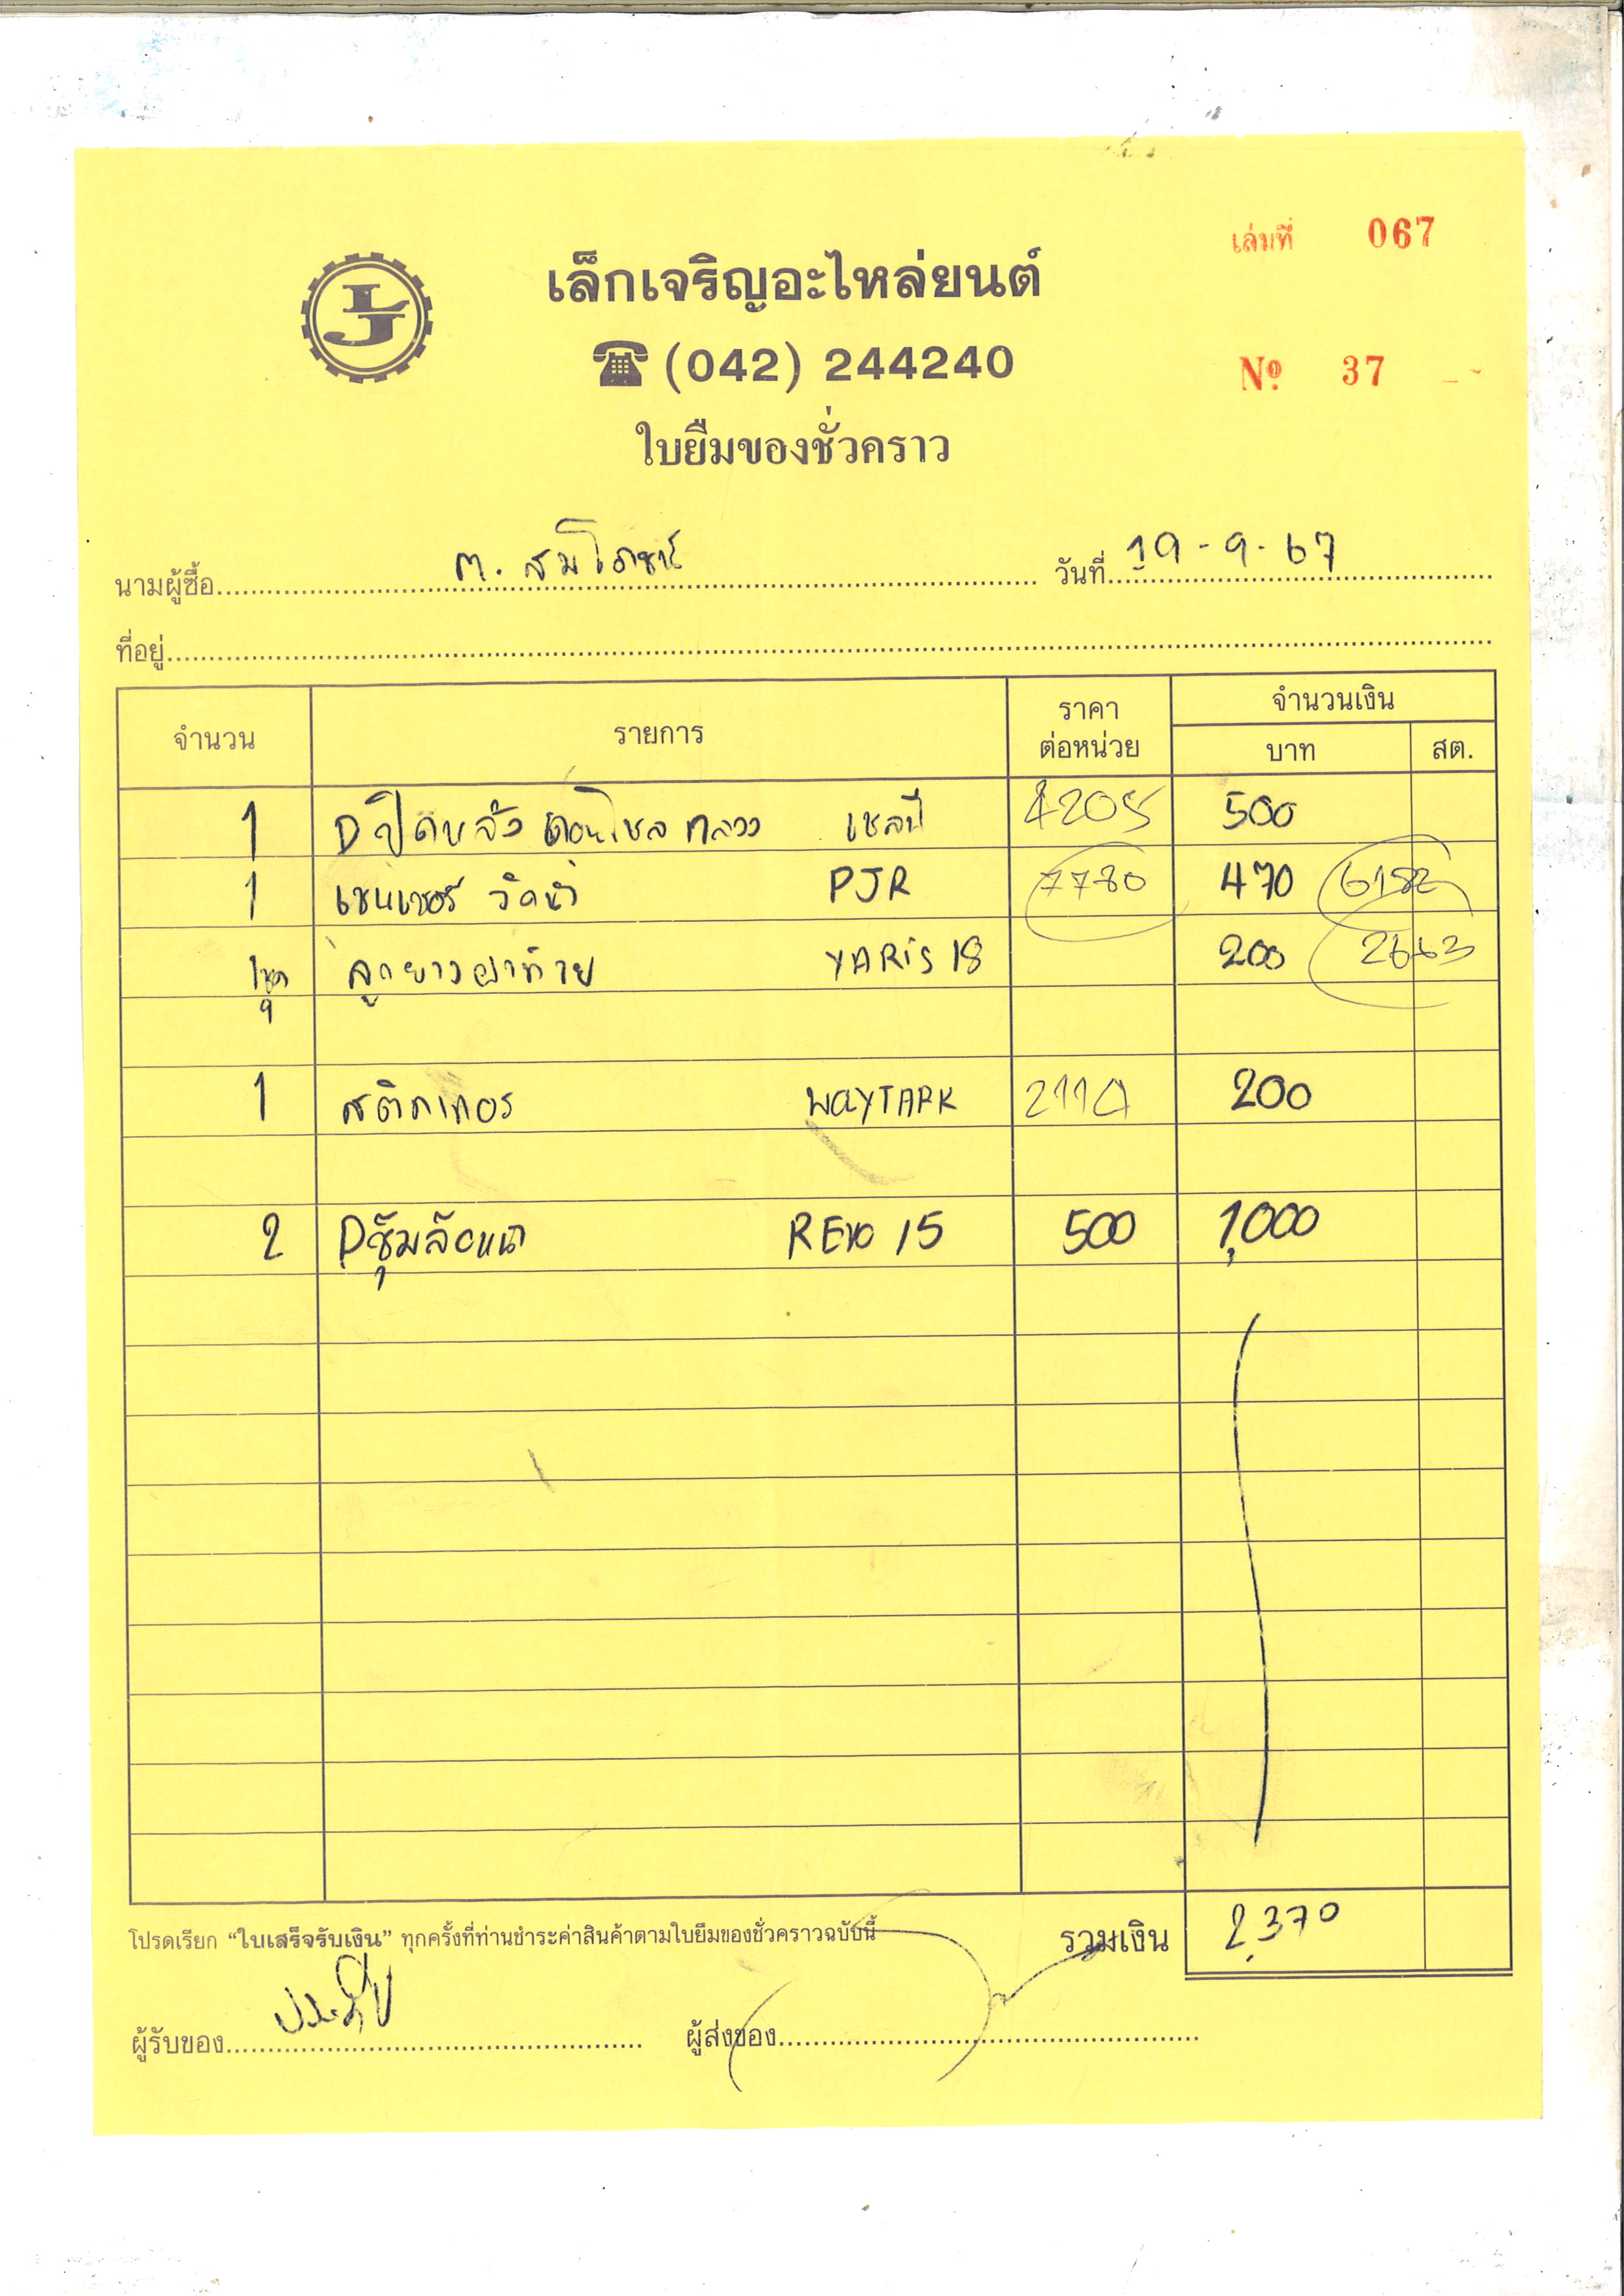 เล่มที่ 067
LJ
เล็กเจริญอะไหล่ยนต์
☎ (042) 244240
Nº 37
ใบยืมของชั่วคราว
นามผู้ซื้อ ต. สมโภชน์ วันที่ 19-9-67
ที่อยู่
จำนวน รายการ ราคาต่อหน่วย จำนวนเงิน
บาท สต.
1 ปิดหลัง คอนโซลกลาง 4205 500
1 เซนเซอร์ วัดน้ำ PJR 7780 470 6182
1ชุด ลูกยางฝาท้าย YARiS 18 200 2663
1 สติกเกอร์ WayTARK 211 200
2 Pซุ้มล้อหน้า REVO 15 500 1,000
โปรดเรียก “ใบเสร็จรับเงิน” ทุกครั้งที่ท่านชำระค่าสินค้าตามใบยืมของชั่วคราวฉบับนี้ รวมเงิน 2,370
ผู้รับของ ประทีป ผู้ส่งของ